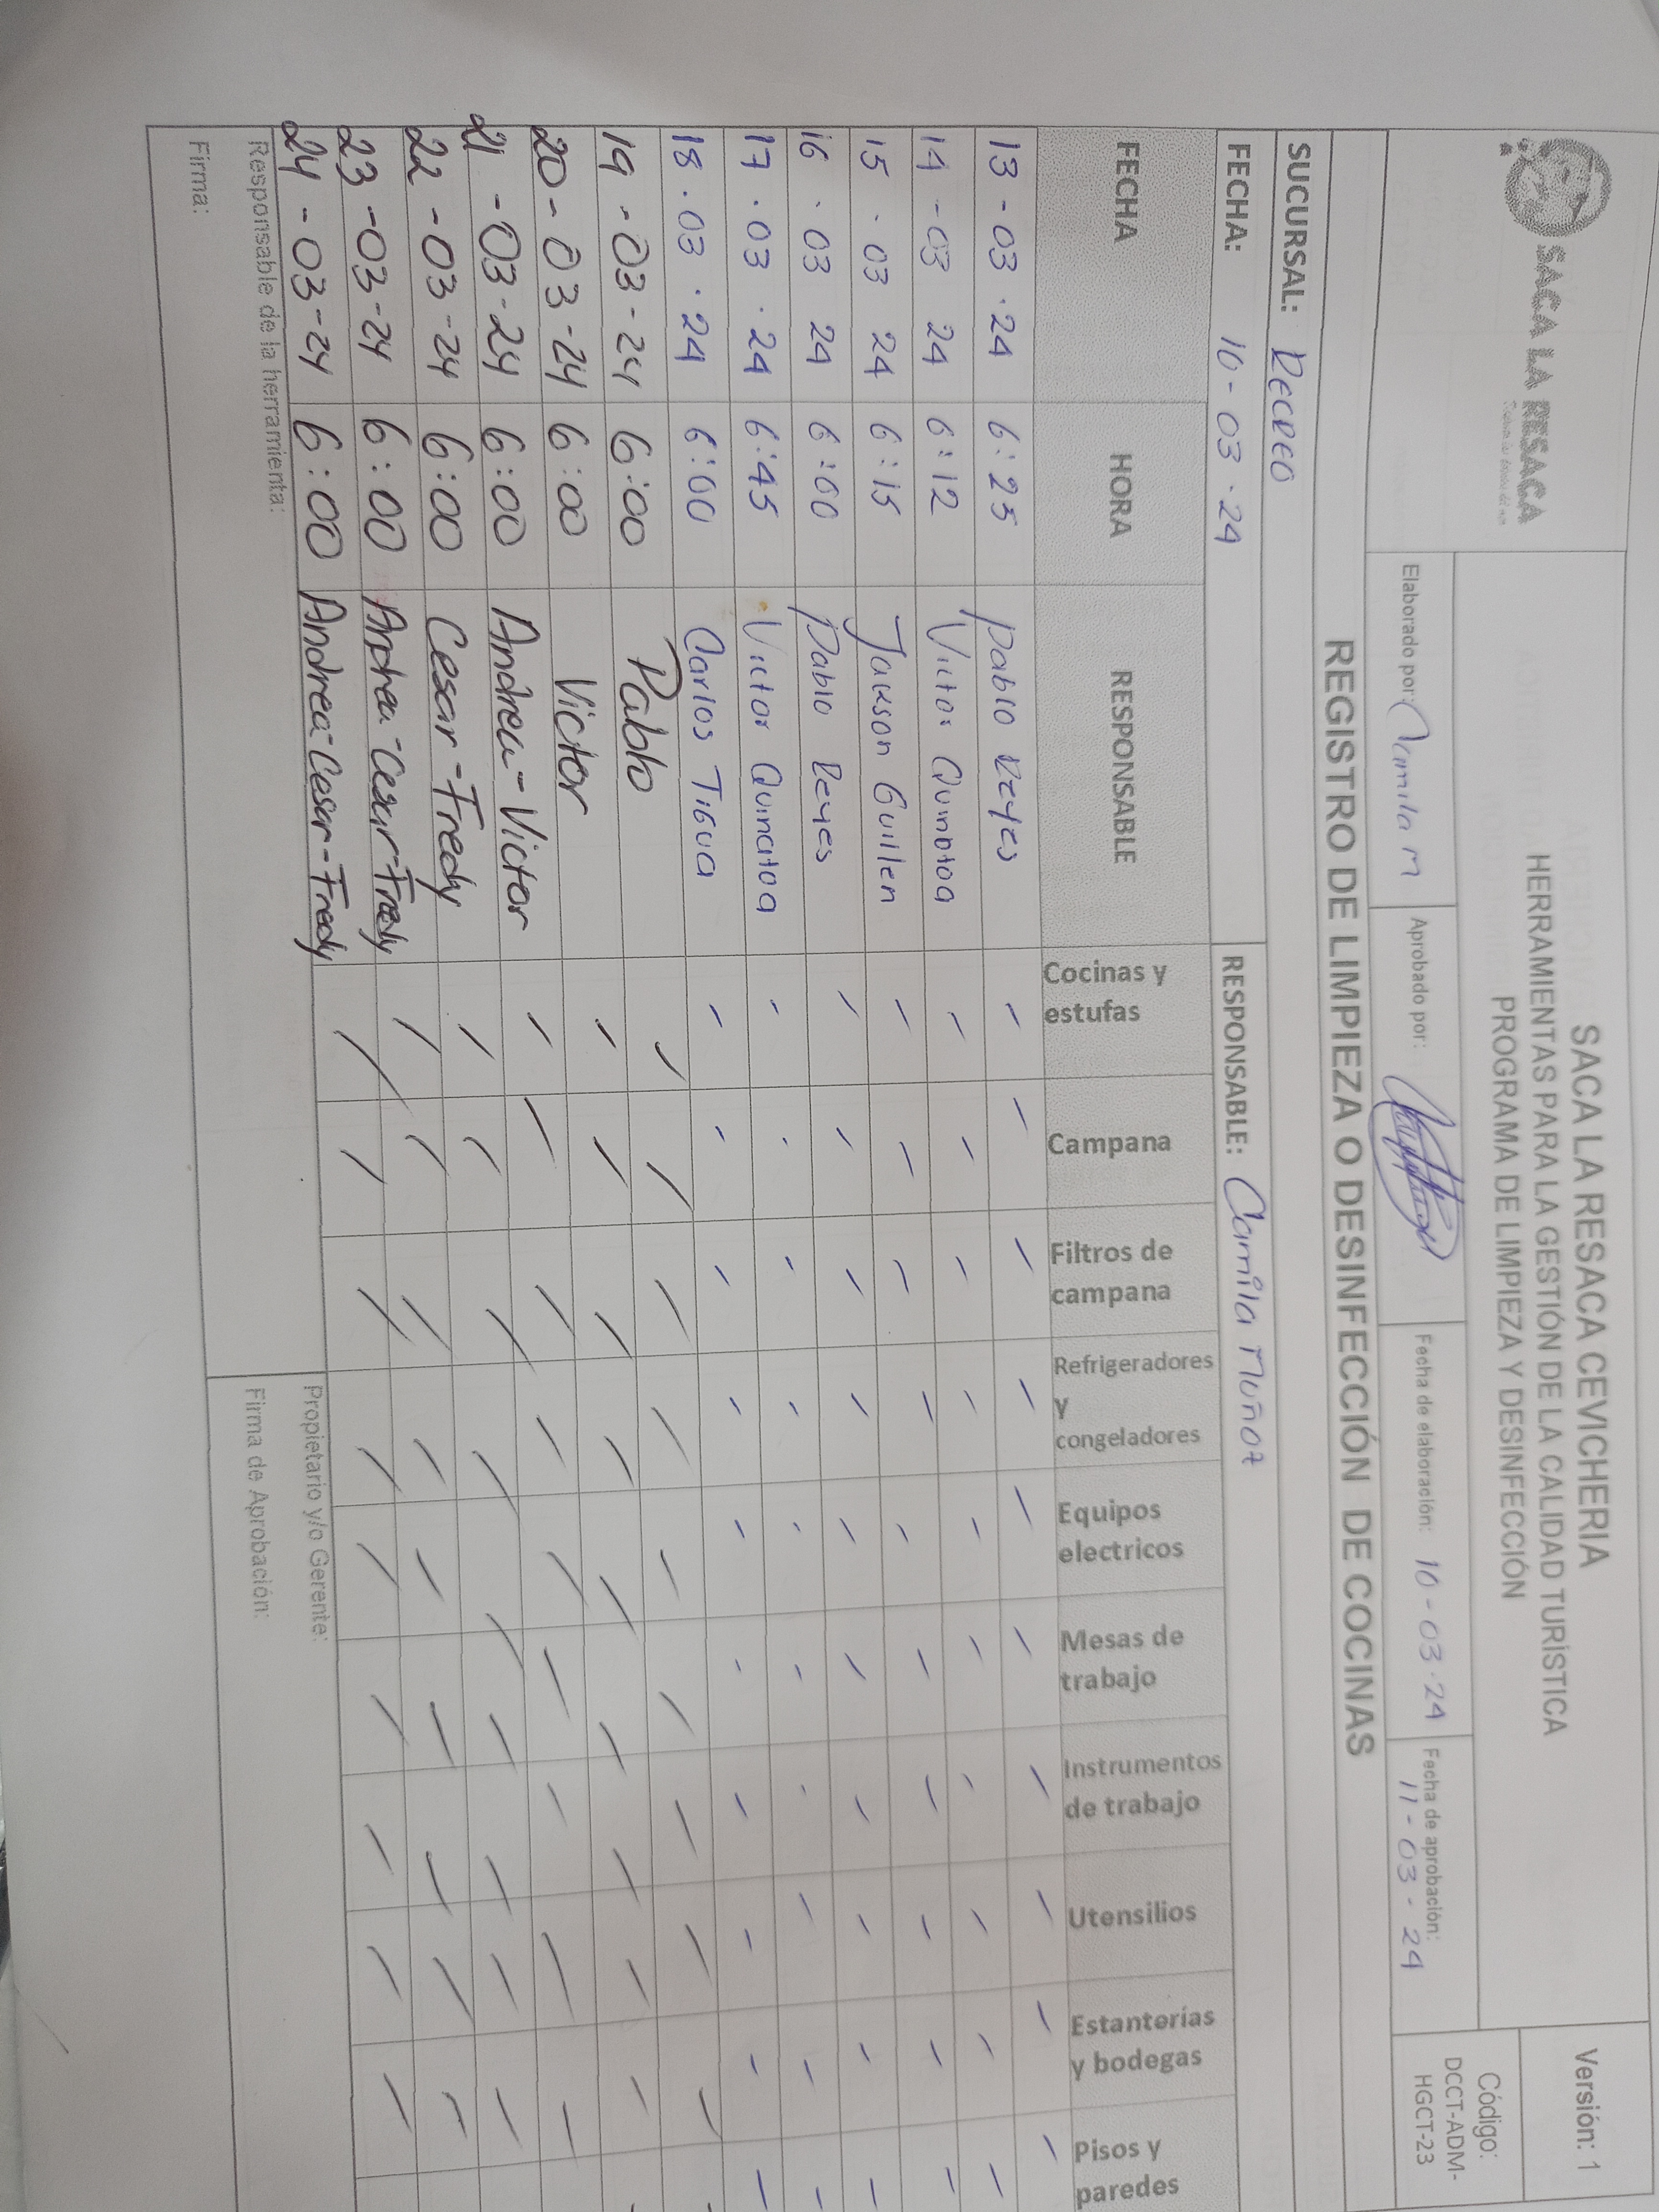 SACA LA RESACA
SACA LA RESACA CEVICHERIA
HERRAMIENTAS PARA LA GESTIÓN DE LA CALIDAD TURÍSTICA
PROGRAMA DE LIMPIEZA Y DESINFECCIÓN
Versión: 1
Código:
DCCT-ADM-
HGCT-23
Elaborado por: Camila M
Aprobado por:
Fecha de elaboración: 10-03-24
Fecha de aprobación:
11-03-24
REGISTRO DE LIMPIEZA O DESINFECCIÓN DE COCINAS
SUCURSAL: Recreo
FECHA: 10-03-24 RESPONSABLE: Camila Muñoz
FECHA HORA RESPONSABLE Cocinas y estufas Campana Filtros de campana Refrigeradores y congeladores Equipos electricos Mesas de trabajo Instrumentos de trabajo Utensilios Estanterías y bodegas Pisos y paredes
13-03-24 6:25 Pablo Reyes
14-03 24 6:12 Victor
15-03 24 6:15 Jakson Guillen
16-03 24 6:00 Pablo Reyes
17-03-24 6:45 Victor Quinatoa
18-03-24 6:00 Carlos Tigua
19-03-24 6:00 Pablo
20-03-24 6:00 Victor
21-03-24 6:00 Andrea-Victor
22-03-24 6:00 Cesar-Fredy
23-03-24 6:00 Andrea-Cesar-Fredy
24-03-24 6:00 Andrea-Cesar-Fredy
Responsable de la herramienta:
Firma:
Propietario y/o Gerente:
Firma de Aprobación: